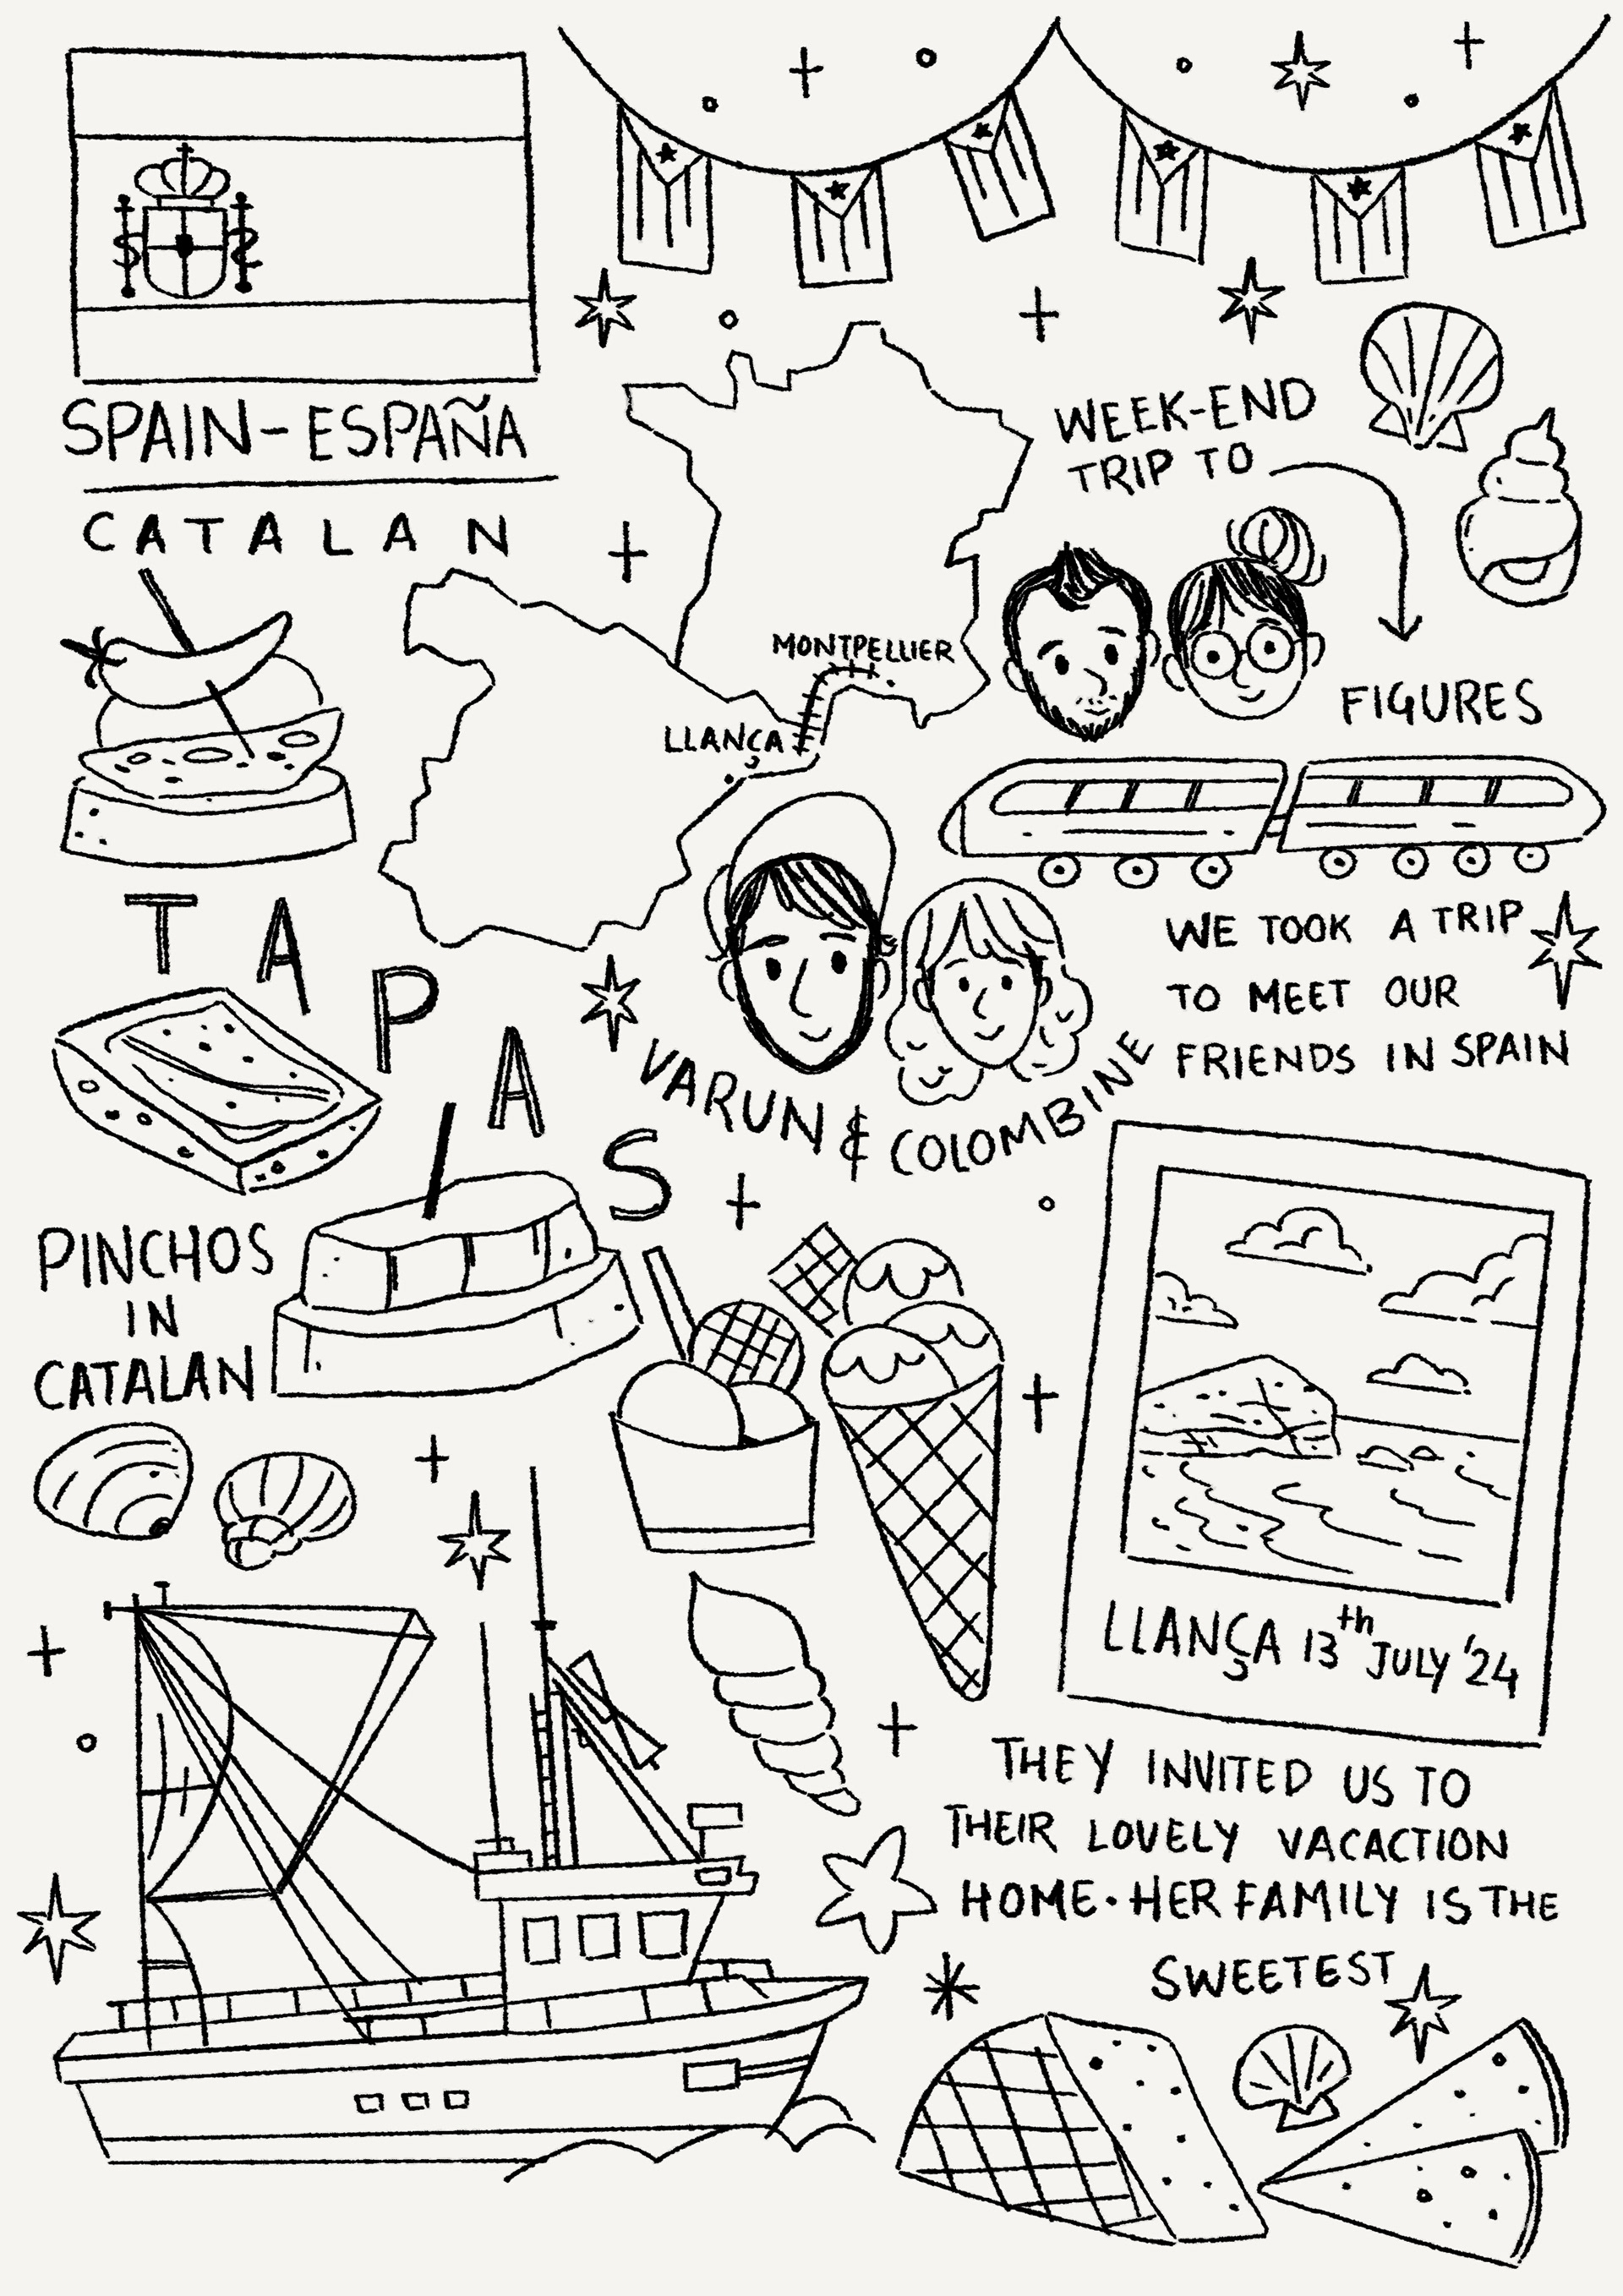 SPAIN-ESPAÑA
CATALAN
WEEK-END
TRIP TO
FIGURES
MONTPELLIER
LLANÇA
TAPAS
VARUN & COLOMBINE
WE TOOK A TRIP
TO MEET OUR
FRIENDS IN SPAIN
PINCHOS
IN
CATALAN
LLANÇA 13th JULY '24
THEY INVITED US TO
THEIR LOVELY VACACTION
HOME. HER FAMILY IS THE
SWEETEST